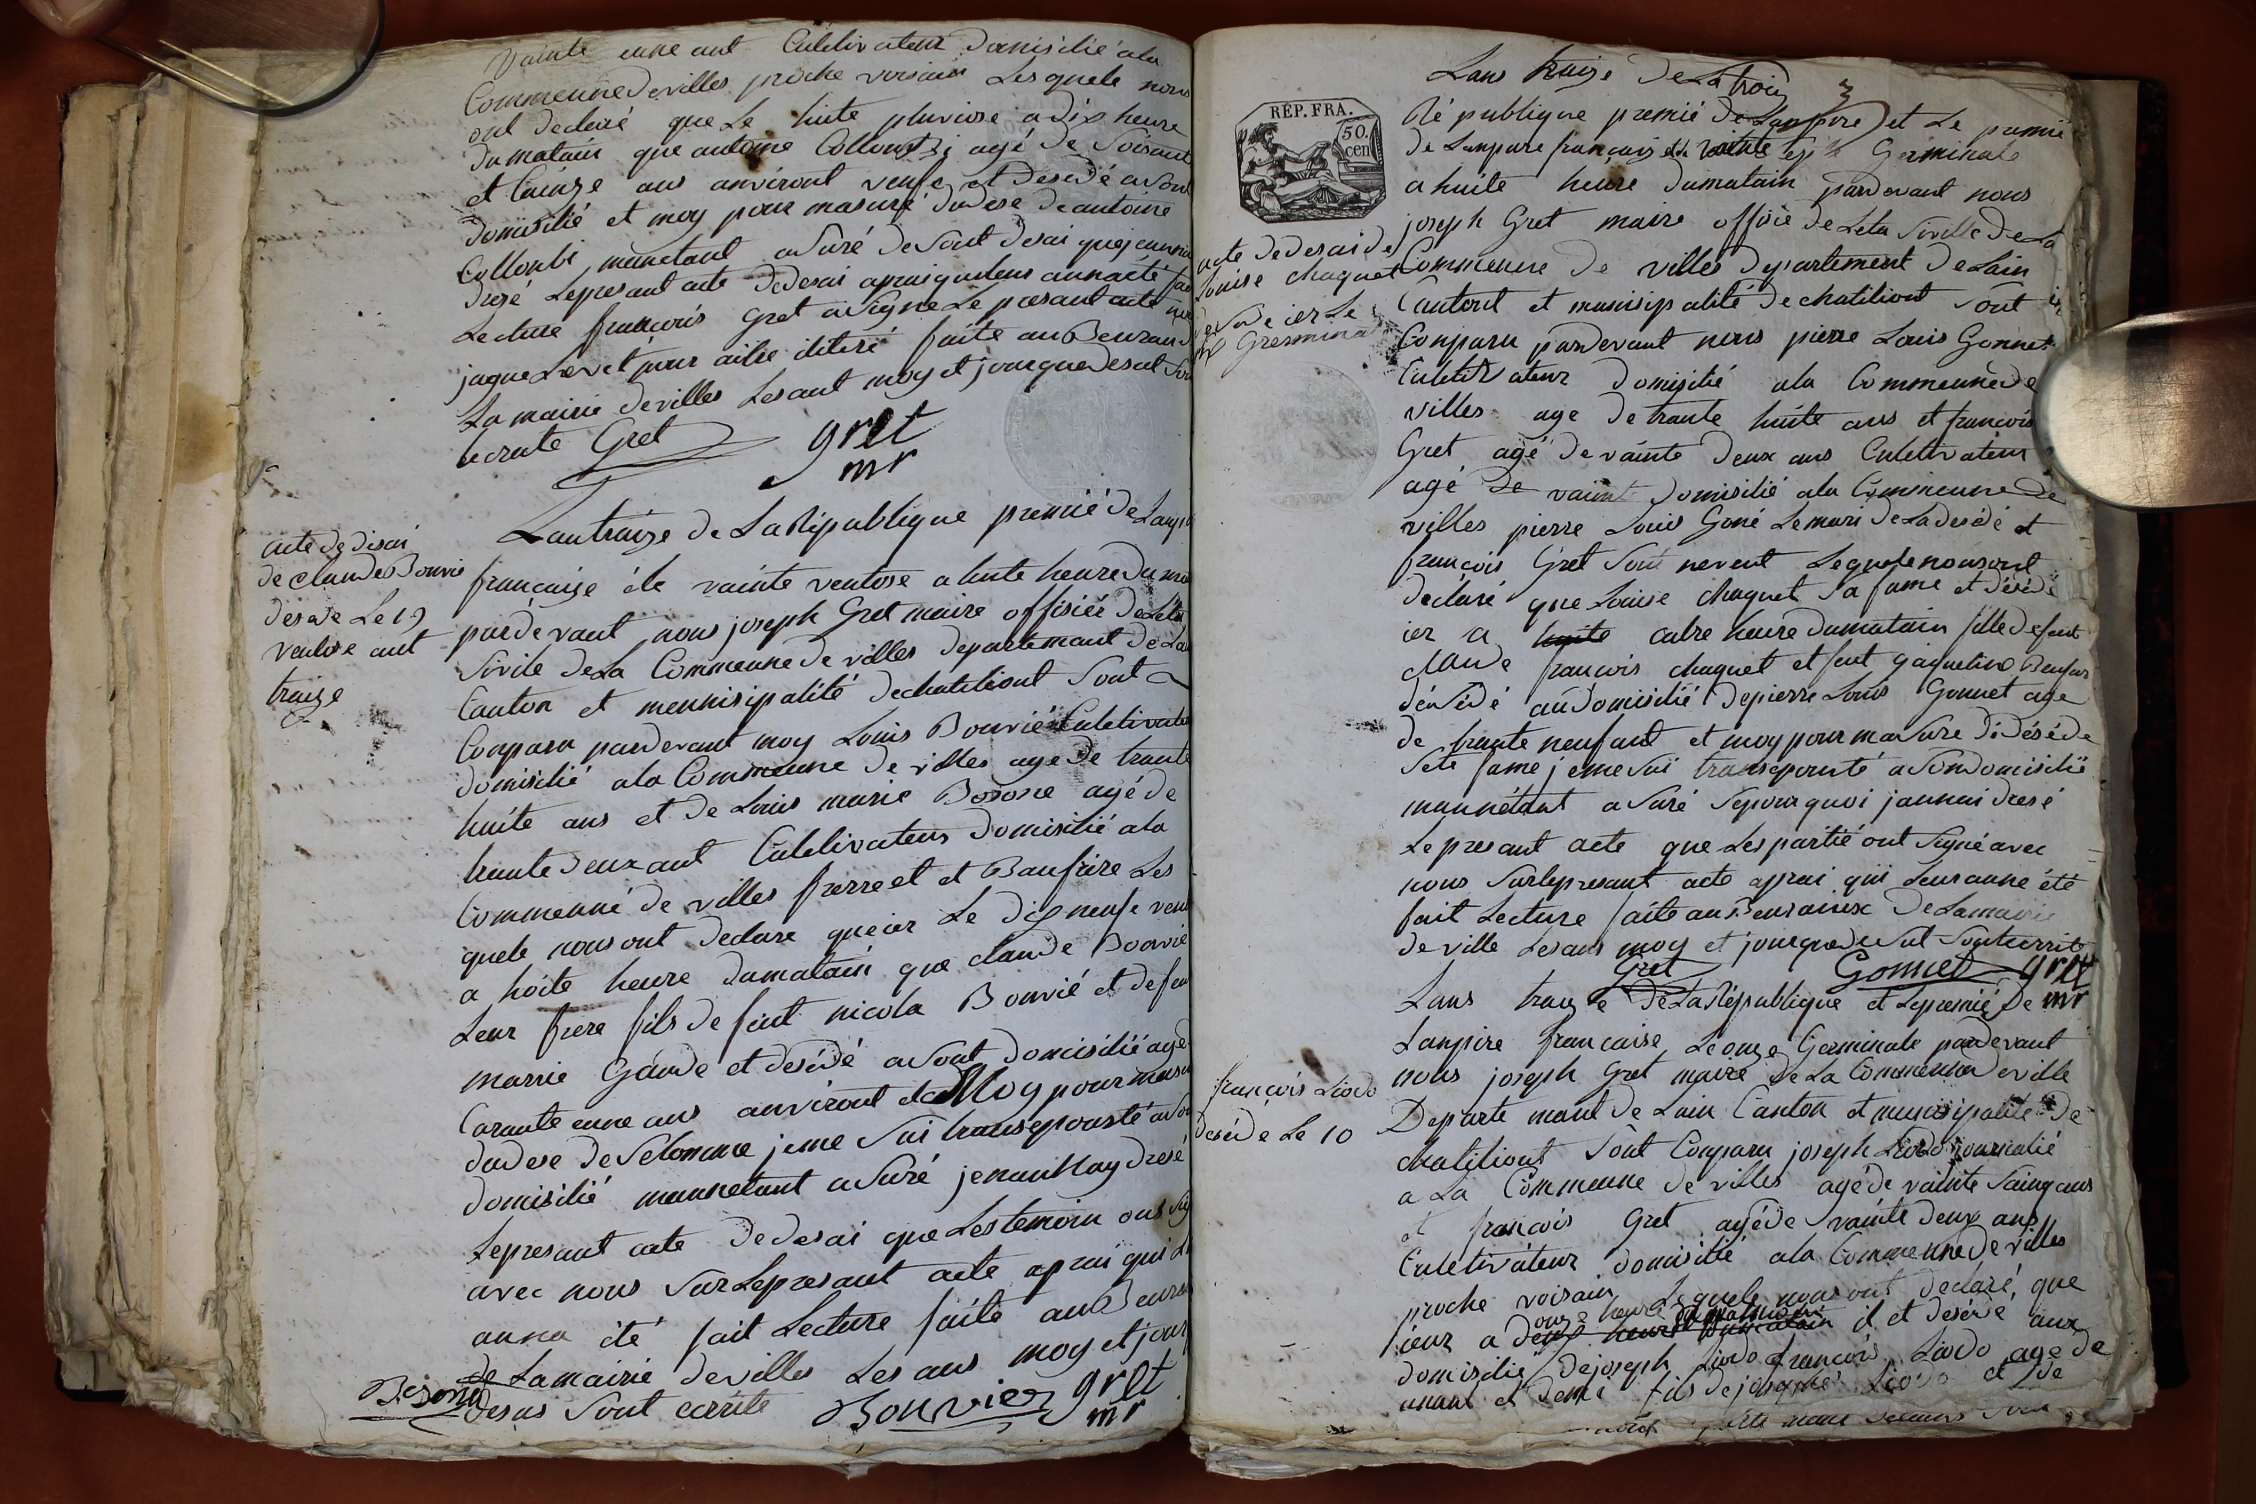 vainte eune ant Culetivateur domisilié ala
Commeune de villes proche voisain Lesquele nous
ont declaré que Le huite pluviose a dix heure
du matain que antoine Collonbi agé de Soisante
et Cainze ans anviront veufe et desedé a Sont
domisilié et moy pour masuré dudese de antoine
Collonbi manetant a Suré de Sont desai
dresé Lepresant acte de desai aprai queleur annaété fai
Lecture francois Gret a Signe Le presant acte
jaque pour aitre ileteré faite au Beuraux
La mairie de villes Lesant moy et jour que desut Son
ecrute Gret gret
mr
acte de disai
de claude Bouvié
desede Le 19
ventose ant
traize
Lantraize de La République premié de Lanpi
francaise éle vainte ventose a huite heure du ma
pardevant nous joseph Gret maire offisiér de Léta
Sivile de La Commeune de villes departemant de Lain
Canton et meunisipalité de chatiliont Sont
Conparu pardevant moy Louis Bouvié Culetivateu
domisilié ala Commeune de villes age de trante
huite ans et de Louis marie Bosone agé de
trante deux ant Culetivateur domisilié ala
Commeuné de villes frerre et et Baufrere Les
quele nous ont declare que ier Le dix neufe vent
a hoite heure dumatain que claude Bouvié
Leur frere fils de feut nicola Bouvié et de feu
marrie Gande et desédé a Sont domisilié age
Carante eune ans anviront et Moy pour masur
dudese de Selomme jeme Sui transeporté a Son
domisilié mannetant a Suré jenannay dresé
Lepresant acte de desai que Lestemoin ons Sig
avec nous Sur Lepresant acte aprai qui L
anna été fait Lecture faite au Beurau
de Lamairie de villes Les ans moy et jour
desus Sont ecrite Bosone Bouvier gret
mr
Lans traize de La trois
République premié de Lanpire et Le premié
de Lanpire français Germinale
a huite heure dumatain pardevant nous
joseph Gret maire offisié de Leta Siville de La
acte de desai de
Louise chaquet
desede ier Le
Germinal
Commeune de villes departement de Lain
Cantont et munisipalité de chatiliont Sont
Conparu pardevant nous pierre Louis Gonnet
Culetivateur domisilié ala Commeune de
villes age de trante huite ans et francois
Gret agé de vainte deux ans Culetivateur
agé de vaint domisilié ala Commeune de
villes pierre Louis Goné Lemari de La desédé et
francois Gret Sont neveut Lequele nous ont
declaré que Louise chaquet Sa fame et désédé
ier a huite catre heure dumatain fille de feut
claude francois chaquet et feut jaqueline Beufar
désédé au domisilié de pierre Louis Gonnet age
de trante neuf ant et moy pour masure di déséde
Sete fame jeme Sui transeporté a Son domisilié
mannétant a Suré Sepourquoi jannai dresé
Le presant acte que Lespartié ont Signé avec
nous Sur Lepresant acte aprai qui Leur anne été
fait Lecture faite au Beuraux de Lamairie
de ville Lesans moy et jour que desut Sont ecrite
Gret Gonnet gret
mr
Lans traize de La République et Lepremié de
Lanpire francaise Le onze Germinale pardevant
nous joseph Gret maire de La Commeune de ville
francois Liodo
desede Le 10
Departemant de Lain Canton et municipalité de
chatiliont Sont Conparu joseph Liodo journalié
a La Commeune de villes agé de vainte Sainq ans
et francois Gret agéde vainte deux ans
Culetivateur domisilié ala Commeune de villes
proche voisain Lequele nous ont declaré que
onze heure du matain
ieur a deux heure du matain il et deséde aux
domisilié de joseph Liodo francois Liodo age de
unant et demi fils de joseph Liodo et de